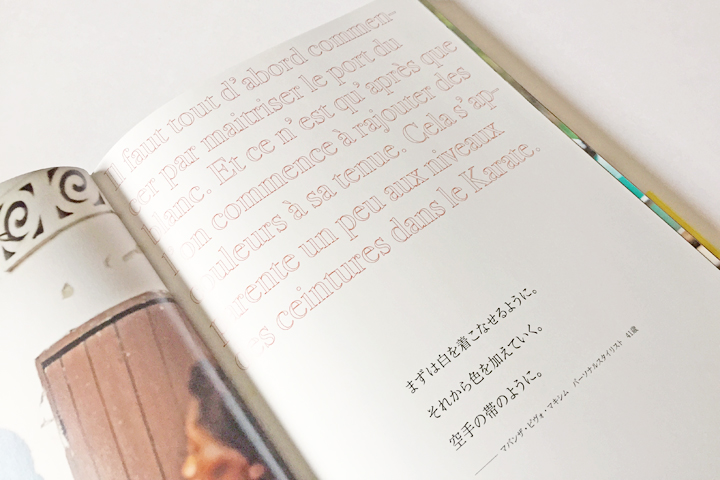 Il faut tout d'abord commen-
cer par maitriser le port du
blanc. Et ce n'est qu'après que
l'on commence à rajouter des
couleurs à sa tenue. Cela s'ap-
parente un peu aux niveaux
des ceintures dans le Karate.
まずは白を着こなせるように。
それから色を加えていく。
空手の帯のように。
マバンザ・ビヴォ・マキシム パーソナルスタイリスト 41歳